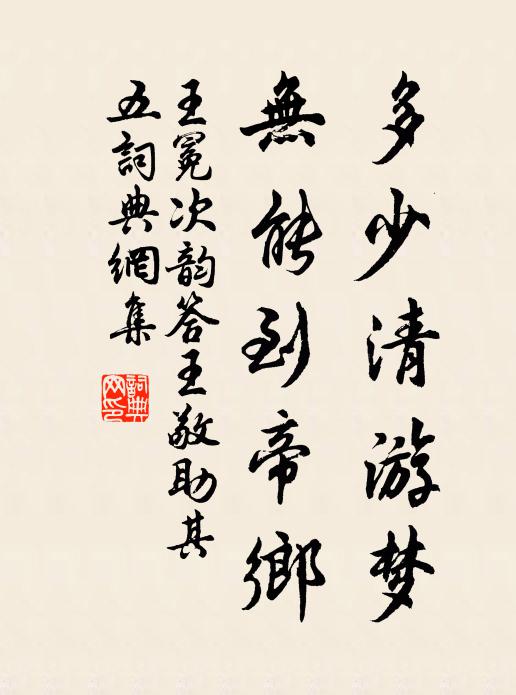 多少清游梦
無能到帝鄉
王冕次韵答王敬助其
五詞典網集
詞典
网印